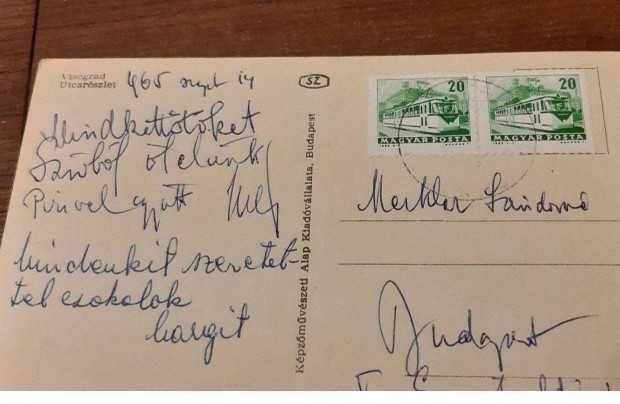 Visegrád
Utcarészlet
965 szept 14
Mindkettőtöket
Szívből ölelünk
Pirivel együtt
Mindenkit szeretet-
tel csokolok
Margit
SZ
Képzőművészeti Alap Kiadóvállalata, Budapest
20
MAGYAR POSTA
20
MAGYAR POSTA
Merkler Sándorné
Budapest